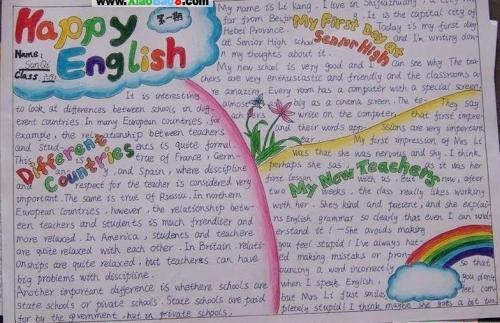 www.XiaoBao8.com
Happy English
第一期
Name:
Class:
My name is Li Kang. I live in Shijiazhuang, a city
far from Beijing. It is the capital city of
Hebei Province. Today is my first day
at Senior High school and I'm writing down
my thoughts about it.
My First Day at
Senior High
My new school is very good and I can see why. The tea-
chers are very enthusiastic and friendly and the classrooms a-
re amazing. Every room has a computer with a special screen,
almost as big as a cinema screen. The te- They say
achers write on the computer, that first impre-
and their words app- ssions are very important
My first impression of Mrs Li
was that she was nervous and shy. I think
perhaps she was, as it was her
first lesson with us. But now, after
two weeks, the class really likes working
with her. She's kind and patient, and she explai-
ns English grammar so clearly that even I can und-
erstand it! — She avoids making
you feel stupid! I've always hat-
ed making mistakes or prono-
uncing a word incorrectly
when I speak English, so that
but Mrs Li just smiles, you don't
feel com-
pletely stupid! I think maybe she goes a bit too
My New Teachers
It is interesting
to look at differences between schools in diff-
erent countries. In many European countries, for
example, the relationship between teachers
and stud- ents is quite formal.
This is true of France, Germ-
any, and Spain, where discipline
and respect for the teacher is considered very
important. The same is true of Russia. In northern
European countries, however, the relationship betw-
een teachers and students is much friendlier and
more relaxed. In America, students and teachers
are quite relaxed with each other. In Britain, relati-
onships are quite relaxed, but teachers can have
big problems with discipline.
Another important difference is whether schools are
state schools or private schools. State schools are paid
for by the government, but in private schools,
Different
Countries